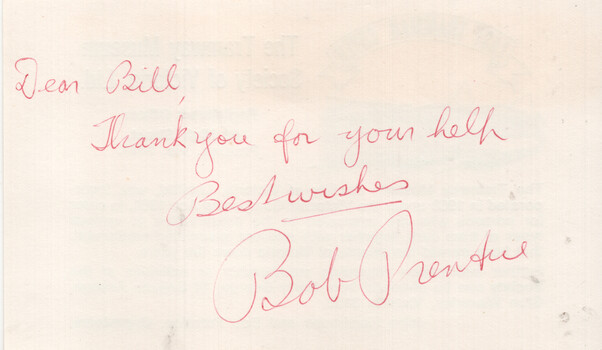 Dear Bill,
Thank you for your help
Best wishes
Bob Prentice